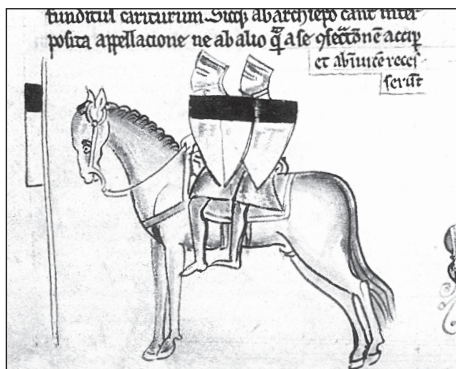 funditus cariturum. Sicq; ab archiepo cant inter-
posita appellacione ne ab alio q̄ a se accip̄
et abinuicē recef-
serūt